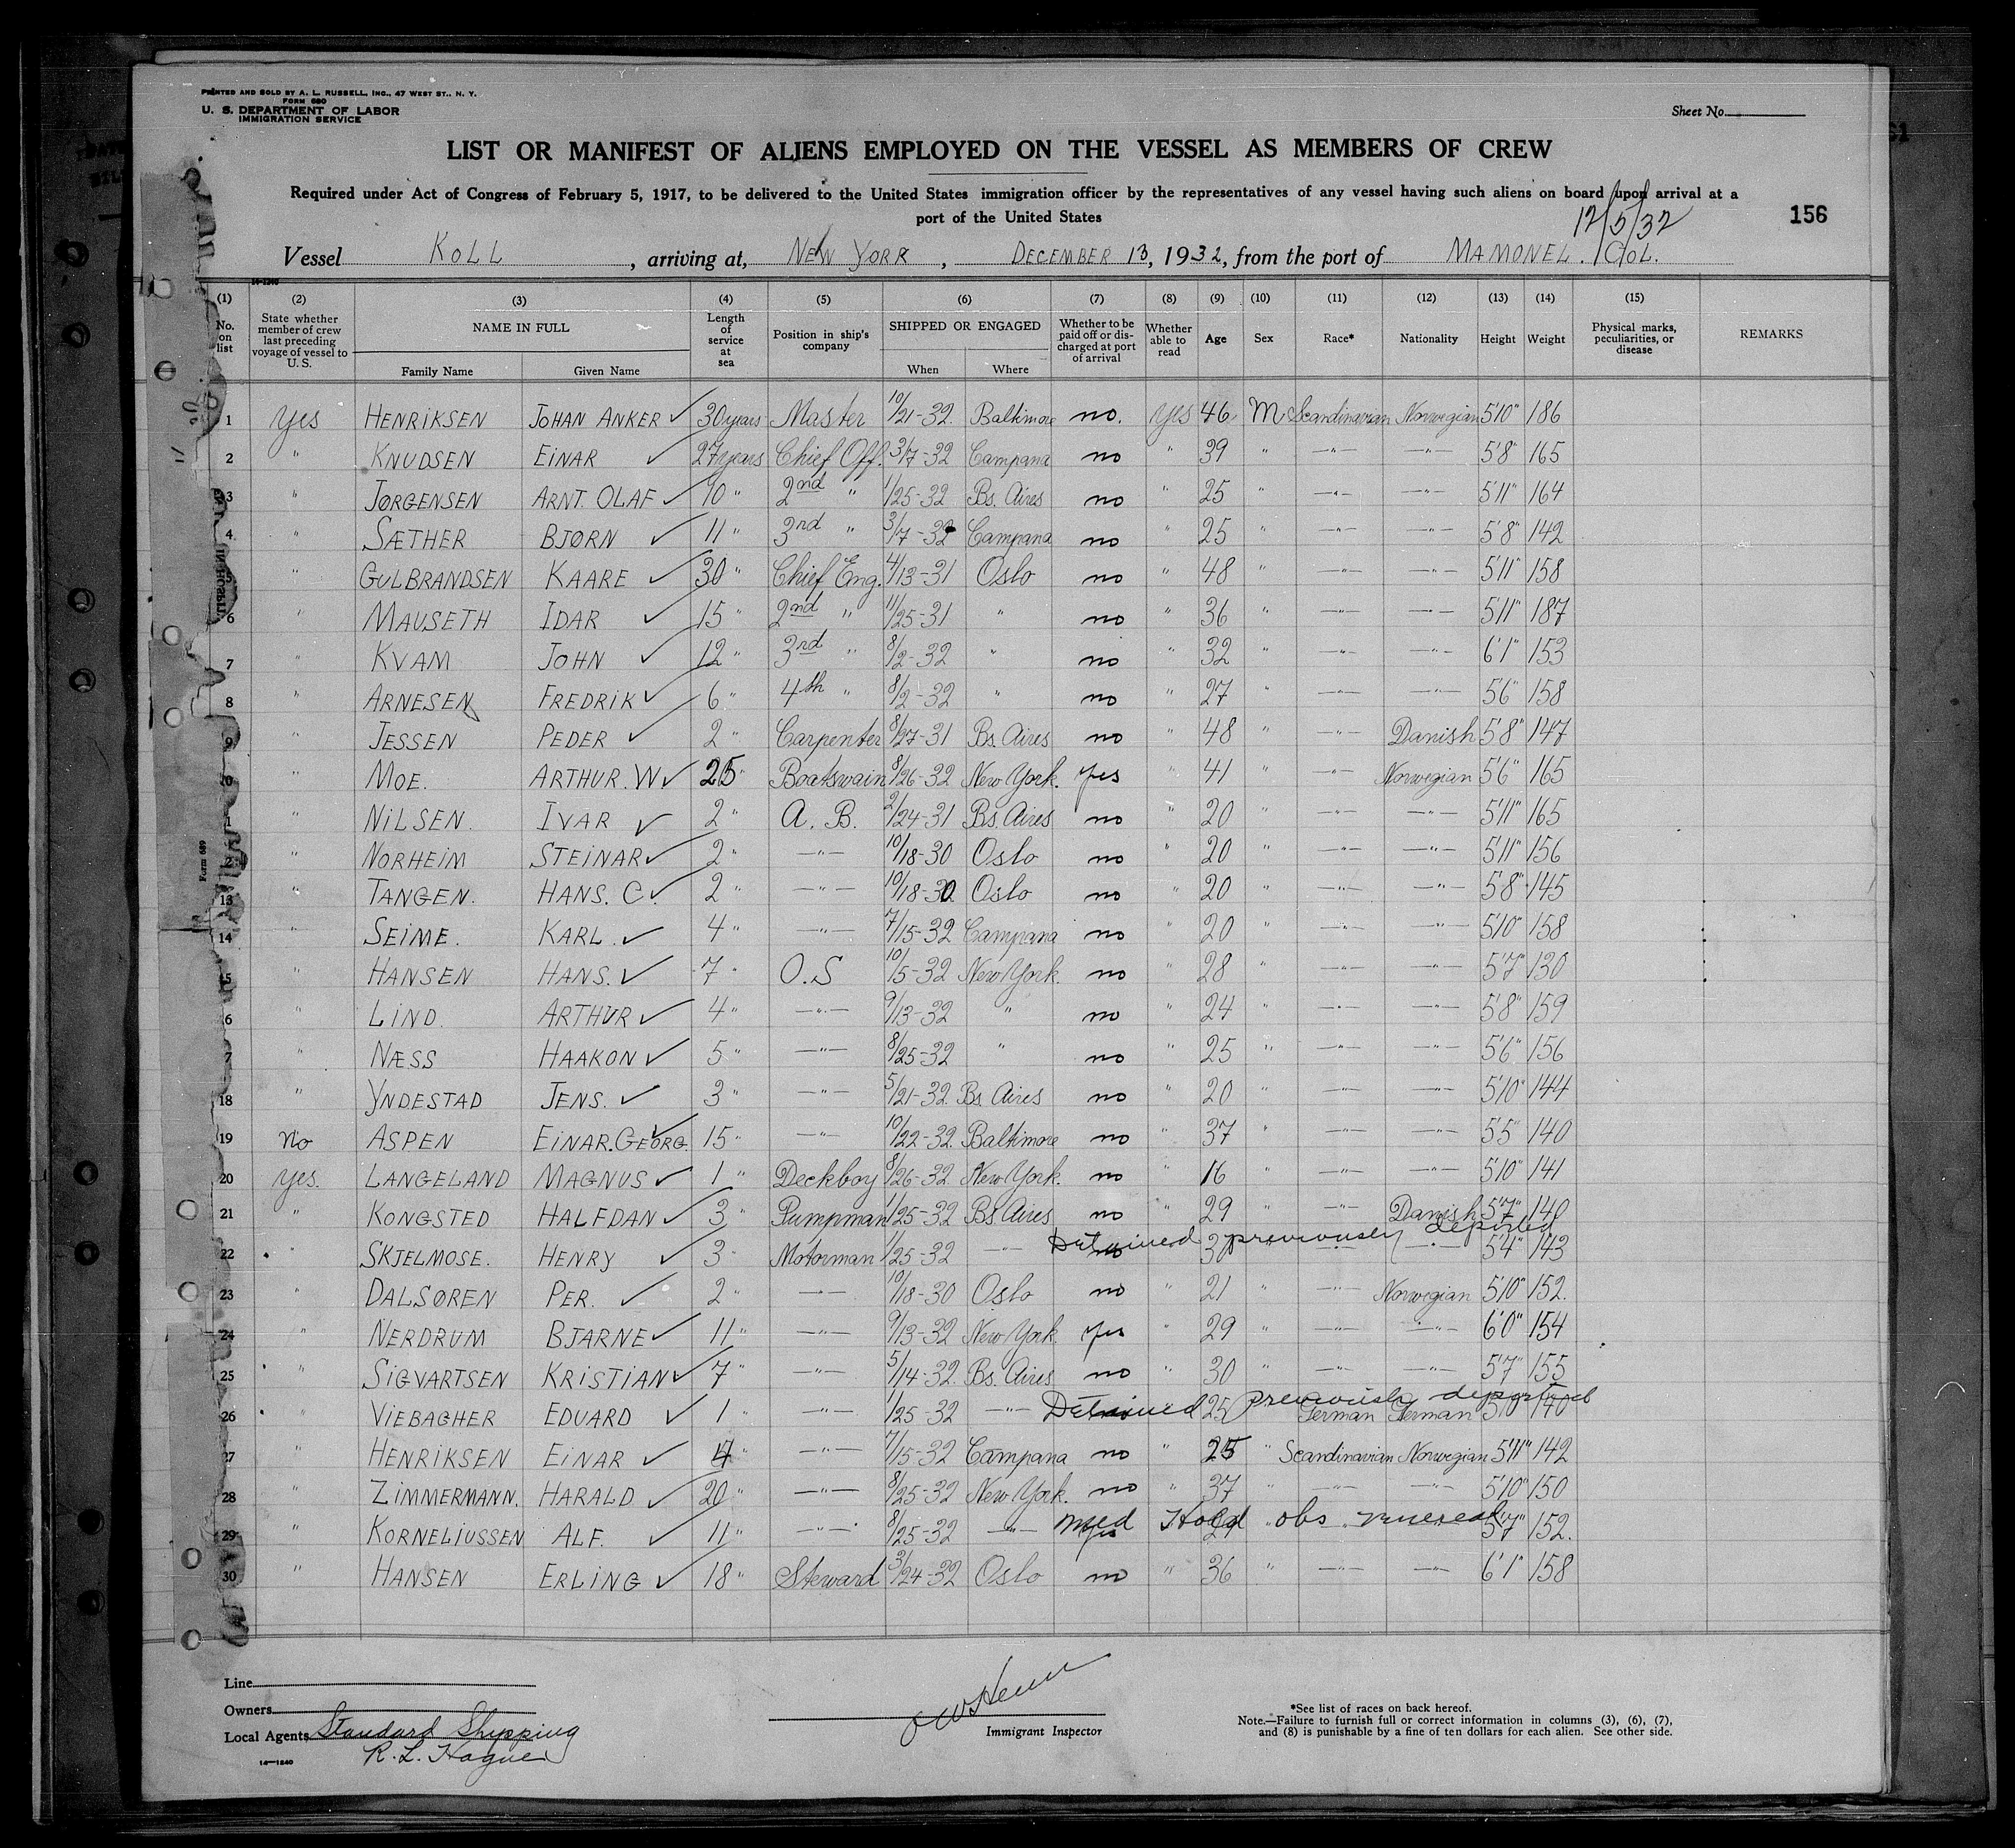 PRINTED AND SOLD BY A. L. RUSSELL, INC., 47 WEST ST., N. Y.
FORM 680
U. S. DEPARTMENT OF LABOR
IMMIGRATION SERVICE
Sheet No.
LIST OR MANIFEST OF ALIENS EMPLOYED ON THE VESSEL AS MEMBERS OF CREW
Required under Act of Congress of February 5, 1917, to be delivered to the United States immigration officer by the representatives of any vessel having such aliens on board upon arrival at a
port of the United States
12/5/32
156
Vessel KOLL, arriving at, NEW YORK, DECEMBER 13, 1932, from the port of MAMONEL. COL.
14-1240
(1) (2) (3) (4) (5) (6) (7) (8) (9) (10) (11) (12) (13) (14) (15)
No. on list State whether member of crew last preceding voyage of vessel to U. S. NAME IN FULL Family Name Given Name Length of service at sea Position in ship's company SHIPPED OR ENGAGED When Where Whether to be paid off or discharged at port of arrival Whether able to read Age Sex Race* Nationality Height Weight Physical marks, peculiarities, or disease REMARKS
1 yes HENRIKSEN JOHAN ANKER ✓ 30 years Master 10/21-32. Baltimore no. yes 46 M Scandinavian Norwegian 5'10" 186
2 " KNUDSEN EINAR ✓ 27 years Chief Off. 3/7-32 Campana no " 39 " —"— —"— 5'8 165
3 " JØRGENSEN ARNT. OLAF ✓ 10 " 2nd " 1/25-32 Bs. Aires no " 25 " —"— —"— 5'11" 164
4 " SÆTHER BJØRN ✓ 11 " 3rd " 3/7-32 Campana no " 25 " —"— —"— 5'8" 142
5 " GULBRANDSEN KAARE ✓ 30 " Chief Eng. 4/13-31 Oslo no " 48 " —"— —"— 5'11" 158
6 " MAUSETH IDAR ✓ 15 " 2nd " 11/25-31 " no " 36 " —"— —"— 5'11" 187
7 " KVAM JOHN ✓ 12 " 3rd " 8/2-32 " no " 32 " —"— —"— 6'1" 153
8 " ARNESEN FREDRIK ✓ 6 " 4th " 8/2-32 " no " 27 " —"— —"— 5'6" 158
9 " JESSEN PEDER ✓ 2 " Carpenter 8/27-31 Bs. Aires no " 48 " —"— Danish 5'8" 147
10 " MOE. ARTHUR. W ✓ 25 " Boatswain 8/26-32 New York. yes " 41 " —"— Norwegian 5'6" 165
1 " NILSEN. IVAR ✓ 2 " A. B. 2/24-31 Bs. Aires no " 20 " —"— —"— 5'11" 165
2 " NORHEIM STEINAR ✓ 2 " —"— 10/18-30 Oslo no " 20 " —"— —"— 5'11" 156
13 " TANGEN. HANS. C. ✓ 2 " —"— 10/18-30 Oslo no " 20 " —"— —"— 5'8" 145
14 " SEIME. KARL. ✓ 4 " —"— 7/15-32 Campana no " 20 " —"— —"— 5'10" 158
15 " HANSEN HANS. ✓ 7 " O.S 10/5-32 New York. no " 28 " —"— —"— 5'7" 130
6 " LIND. ARTHUR ✓ 4 " —"— 9/13-32 " no " 24 " —"— —"— 5'8" 159
7 " NÆSS HAAKON ✓ 5 " —"— 8/25-32 " no " 25 " —"— —"— 5'6" 156
18 " YNDESTAD JENS. ✓ 3 " —"— 5/21-32. Bs Aires no " 20 " —"— —"— 5'10" 144
19 no ASPEN EINAR. GEORG. ✓ 15 " —"— 10/22-32. Baltimore no " 37 " —"— —"— 5'5" 140
20 yes. LANGELAND MAGNUS ✓ 1 " Deckboy 8/26-32 New York. no " 16 " —"— —"— 5'10" 141
21 " KONGSTED HALFDAN ✓ 3 " Pumpman 1/25-32 Bs Aires no " 29 " —"— Danish 5'7" 140
22 " SKJELMOSE. HENRY ✓ 3 " Motorman 1/25-32 —"— Detained previously deported —"— 5'4" 143
23 " DALSØREN PER. ✓ 2 " —"— 10/18-30 Oslo no " 21 " —"— Norwegian 5'10" 152.
24 " NERDRUM BJARNE ✓ 11 " —"— 9/13-32 New York yes " 29 " —"— —"— 6'0" 154
25 " SIGVARTSEN KRISTIAN ✓ 7 " —"— 5/14-32. Bs. Aires no " 30 " —"— —"— 5'7" 155
26 " VIEBAGHER EDUARD ✓ 1 " —"— 1/25-32 —"— Detained 25 previously deported German German 5'10" 140
27 " HENRIKSEN EINAR ✓ 4 " —"— 7/15-32 Campana no " 25 " Scandinavian Norwegian 5'11" 142
28 " ZIMMERMANN. HARALD ✓ 20 " —"— 8/25-32 New York. no " 37 " —"— —"— 5'10" 150
29 " KORNELIUSSEN ALF. ✓ 11 " —"— 8/25-32 —"— yes Med Hold obs venereal 5'7" 152.
30 " HANSEN ERLING ✓ 18 " Steward 3/24-32 Oslo no " 36 " —"— —"— 6'1" 158
Form 689
Line
Owners
Local Agents Standard Shipping
R. L. Hague
14—1240
Immigrant Inspector
*See list of races on back hereof.
Note.—Failure to furnish full or correct information in columns (3), (6), (7),
and (8) is punishable by a fine of ten dollars for each alien. See other side.